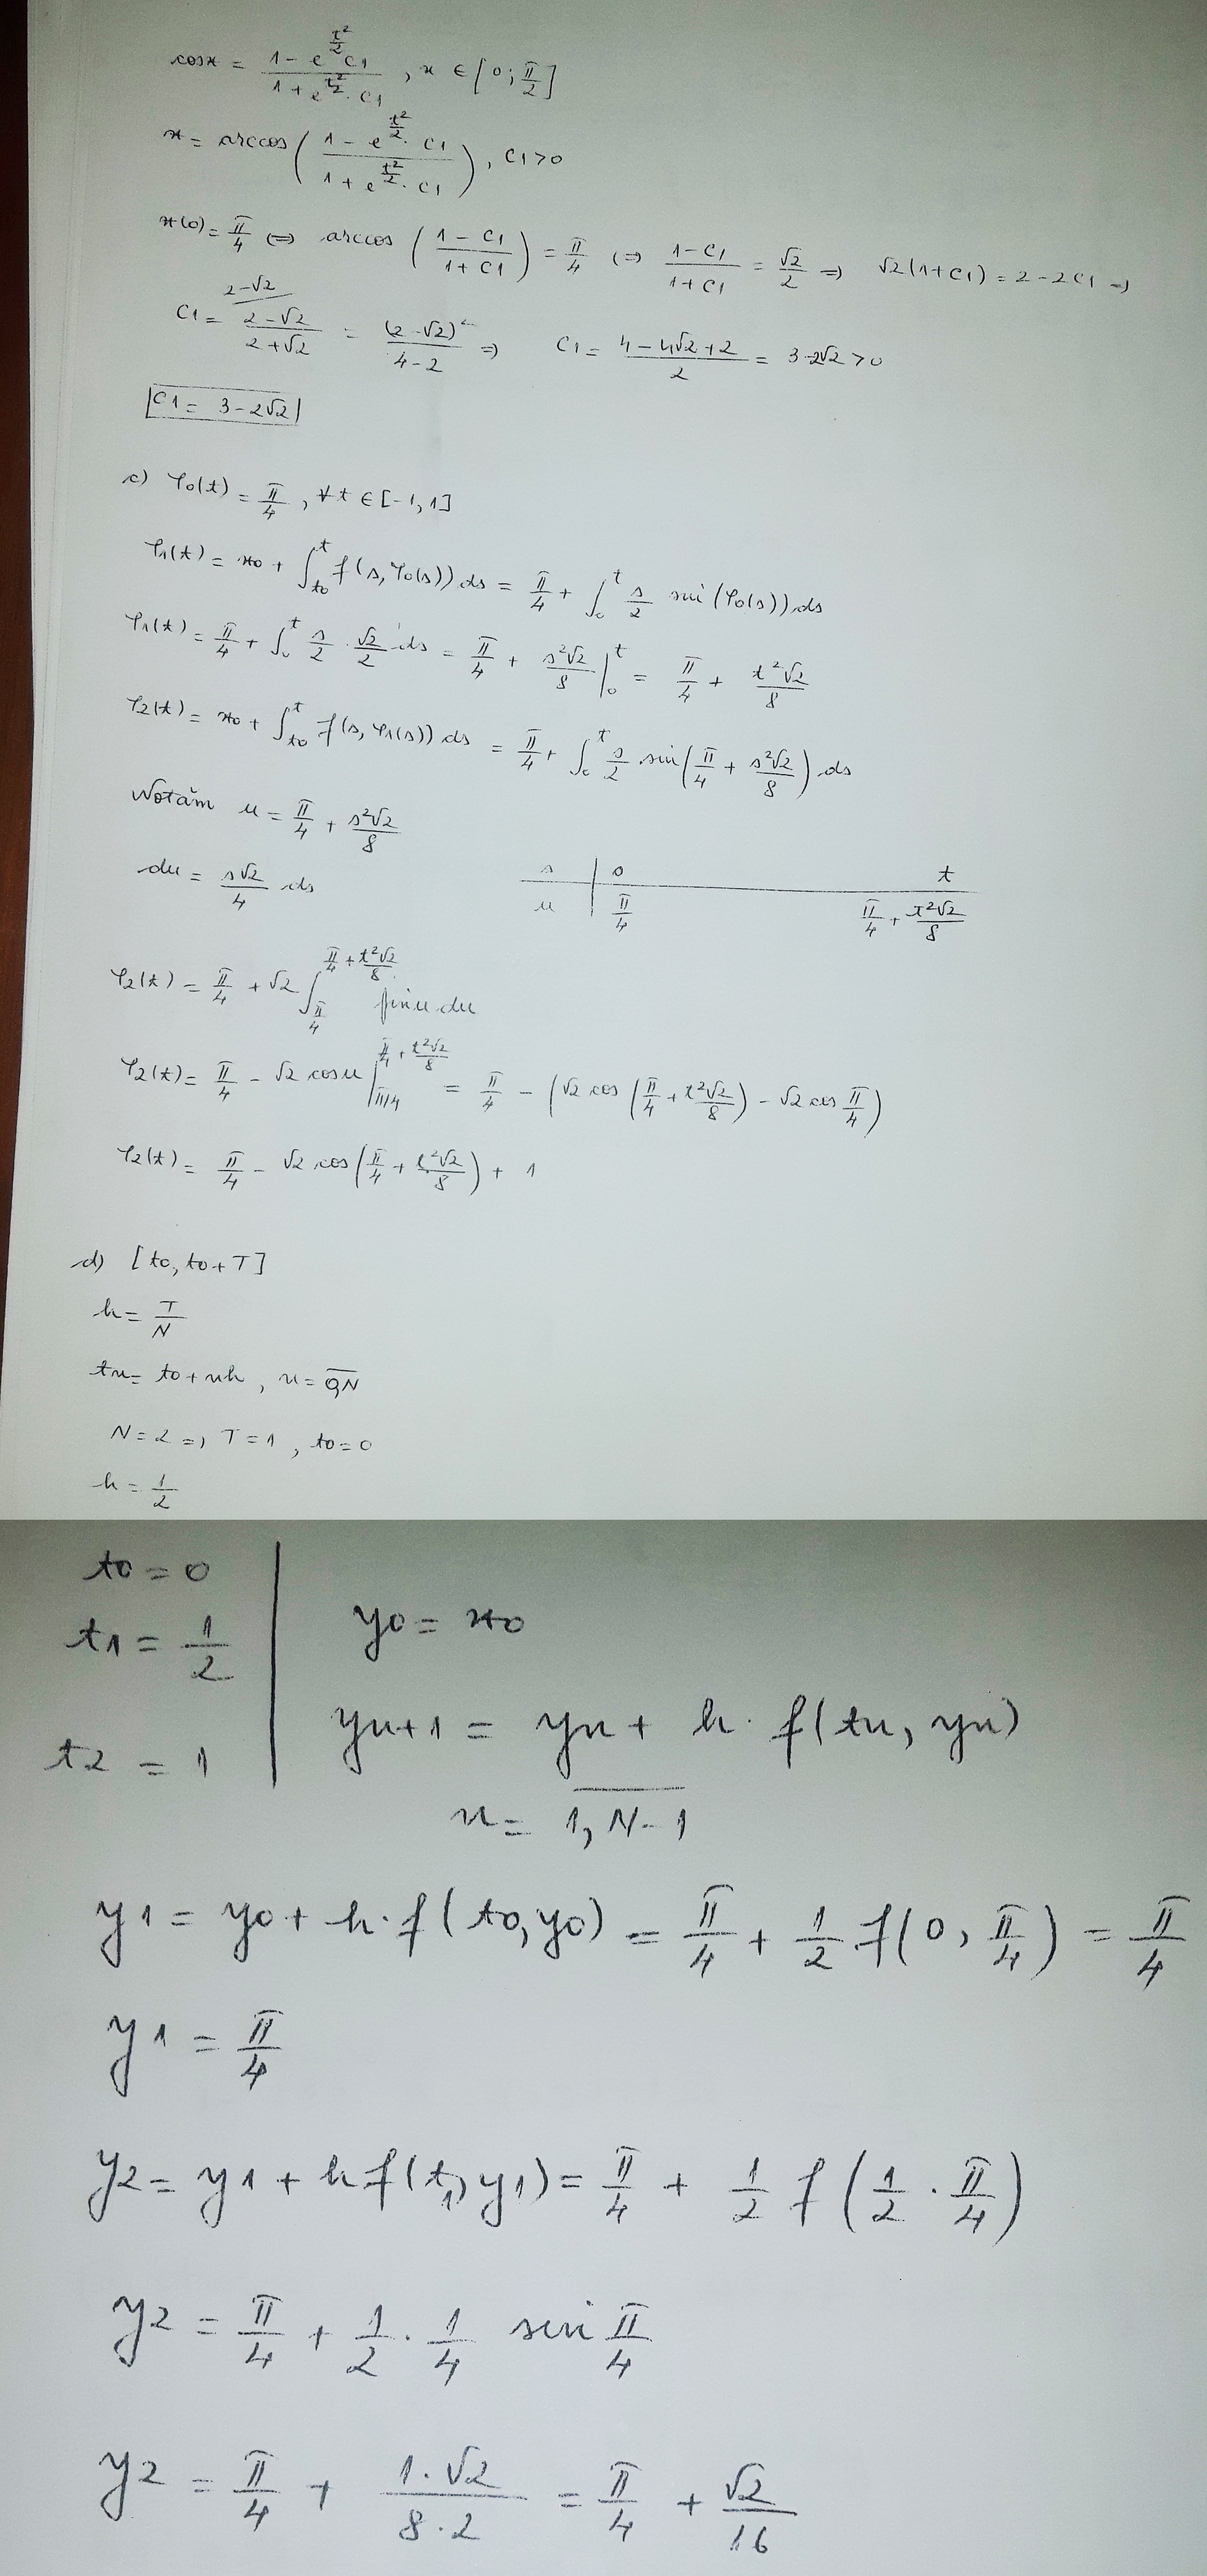 cos x = (1 - e^(t²/2) c1)/(1 + e^(t²/2) · c1) , x ∈ [0; π/2]
x = arccos( (1 - e^(t²/2) · c1)/(1 + e^(t²/2) · c1) ) , c1 > 0
x(0) = π/4 (=) arccos ( (1 - c1)/(1 + c1) ) = π/4 (=) (1 - c1)/(1 + c1) = √2/2 => √2(1 + c1) = 2 - 2c1 =>
2-√2
c1 = (2 - √2)/(2 + √2) = (2 - √2)²/(4 - 2) => c1 = (4 - 4√2 + 2)/2 = 3-2√2 > 0
c1 = 3 - 2√2
c) φ0(t) = π/4 , ∀ t ∈ [-1, 1]
φ1(t) = x0 + ∫_t0^t f(s, φ0(s)) ds = π/4 + ∫_0^t s/2 sin (φ0(s)) ds
φ1(t) = π/4 + ∫_0^t s/2 · √2/2 ds = π/4 + s²√2/8 |_0^t = π/4 + t²√2/8
φ2(t) = x0 + ∫_t0^t f(s, φ1(s)) ds = π/4 + ∫_0^t s/2 sin(π/4 + s²√2/8) ds
Notăm u = π/4 + s²√2/8
du = s√2/4 ds
s | 0 t
u | π/4 π/4 + t²√2/8
φ2(t) = π/4 + √2 ∫_(π/4)^(π/4 + t²√2/8) sin u du
φ2(t) = π/4 - √2 cos u |_(π/4)^(π/4 + t²√2/8) = π/4 - (√2 cos (π/4 + t²√2/8) - √2 cos π/4)
φ2(t) = π/4 - √2 cos(π/4 + t²√2/8) + 1
d) [t0, t0 + T]
h = T/N
tn = t0 + nh , n = 0,N
N = 2 =) T = 1 , t0 = 0
h = 1/2
t0 = 0
t1 = 1/2
t2 = 1
y0 = x0
yn+1 = yn + h · f(tn, yn)
n = 1, N-1
y1 = y0 + h · f(t0, y0) = π/4 + 1/2 f(0, π/4) = π/4
y1 = π/4
y2 = y1 + h f(t1, y1) = π/4 + 1/2 f(1/2 · π/4)
y2 = π/4 + 1/2 · 1/4 sin π/4
y2 = π/4 + (1 · √2)/(8 · 2) = π/4 + √2/16